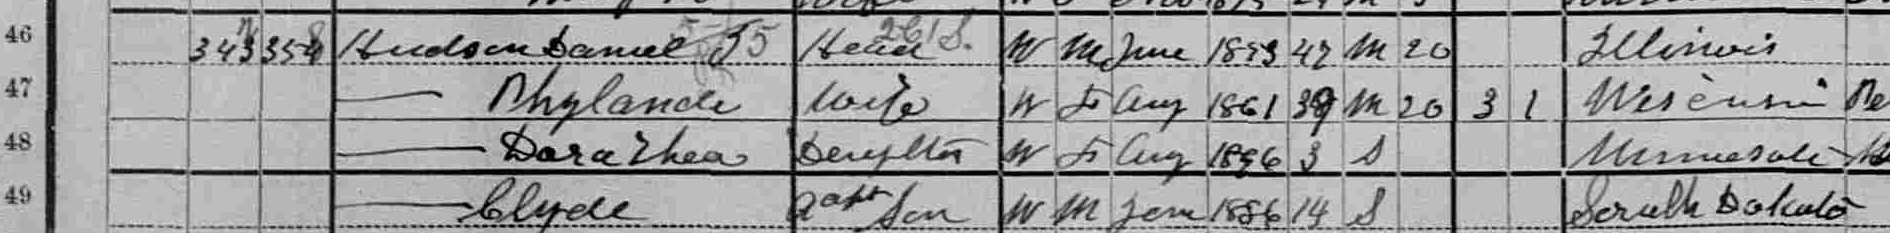 46 343 354 Hudson Daniel J 55 Head W M June 1853 47 M 20 Illinois
47 —— Phylande Wife W F Aug 1861 39 M 20 3 1 Wisconsin
48 —— Dorothea Daughter W F Aug 1896 3 S Minnesota
49 —— Clyde adpt Son W M Jan 1886 14 S South Dakota